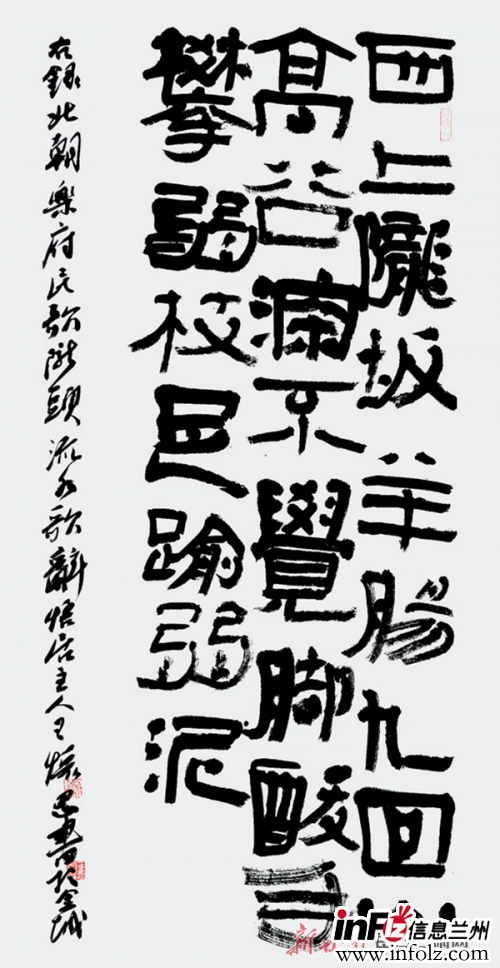 西上隴坂羊腸九回山
高谷深不覺脚酸手
攀弱枝足踰弱泥
右録北朝樂府民歌隴頭流水歌辭主人王書於金城
inFolz信息兰州
www.infolz.com